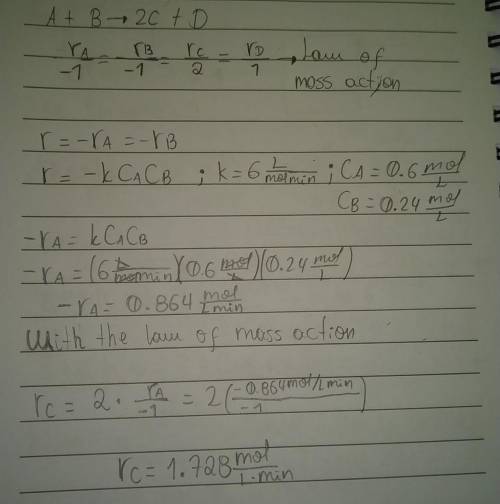 A + B → 2C + D
rA/-1 = rB/-1 = rC/2 = rD/1 → Law of mass action
r = -rA = -rB
r = -k CA CB ; k = 6 L/mol min ; CA = 0.6 mol/L
CB = 0.24 mol/L
-rA = k CA CB
-rA = (6 L/mol min)(0.6 mol/L)(0.24 mol/L)
-rA = 0.864 mol/L min
With the law of mass action
rC = 2 · rA/-1 = 2(-0.864 mol/L min/-1)
rC = 1.728 mol/L·min